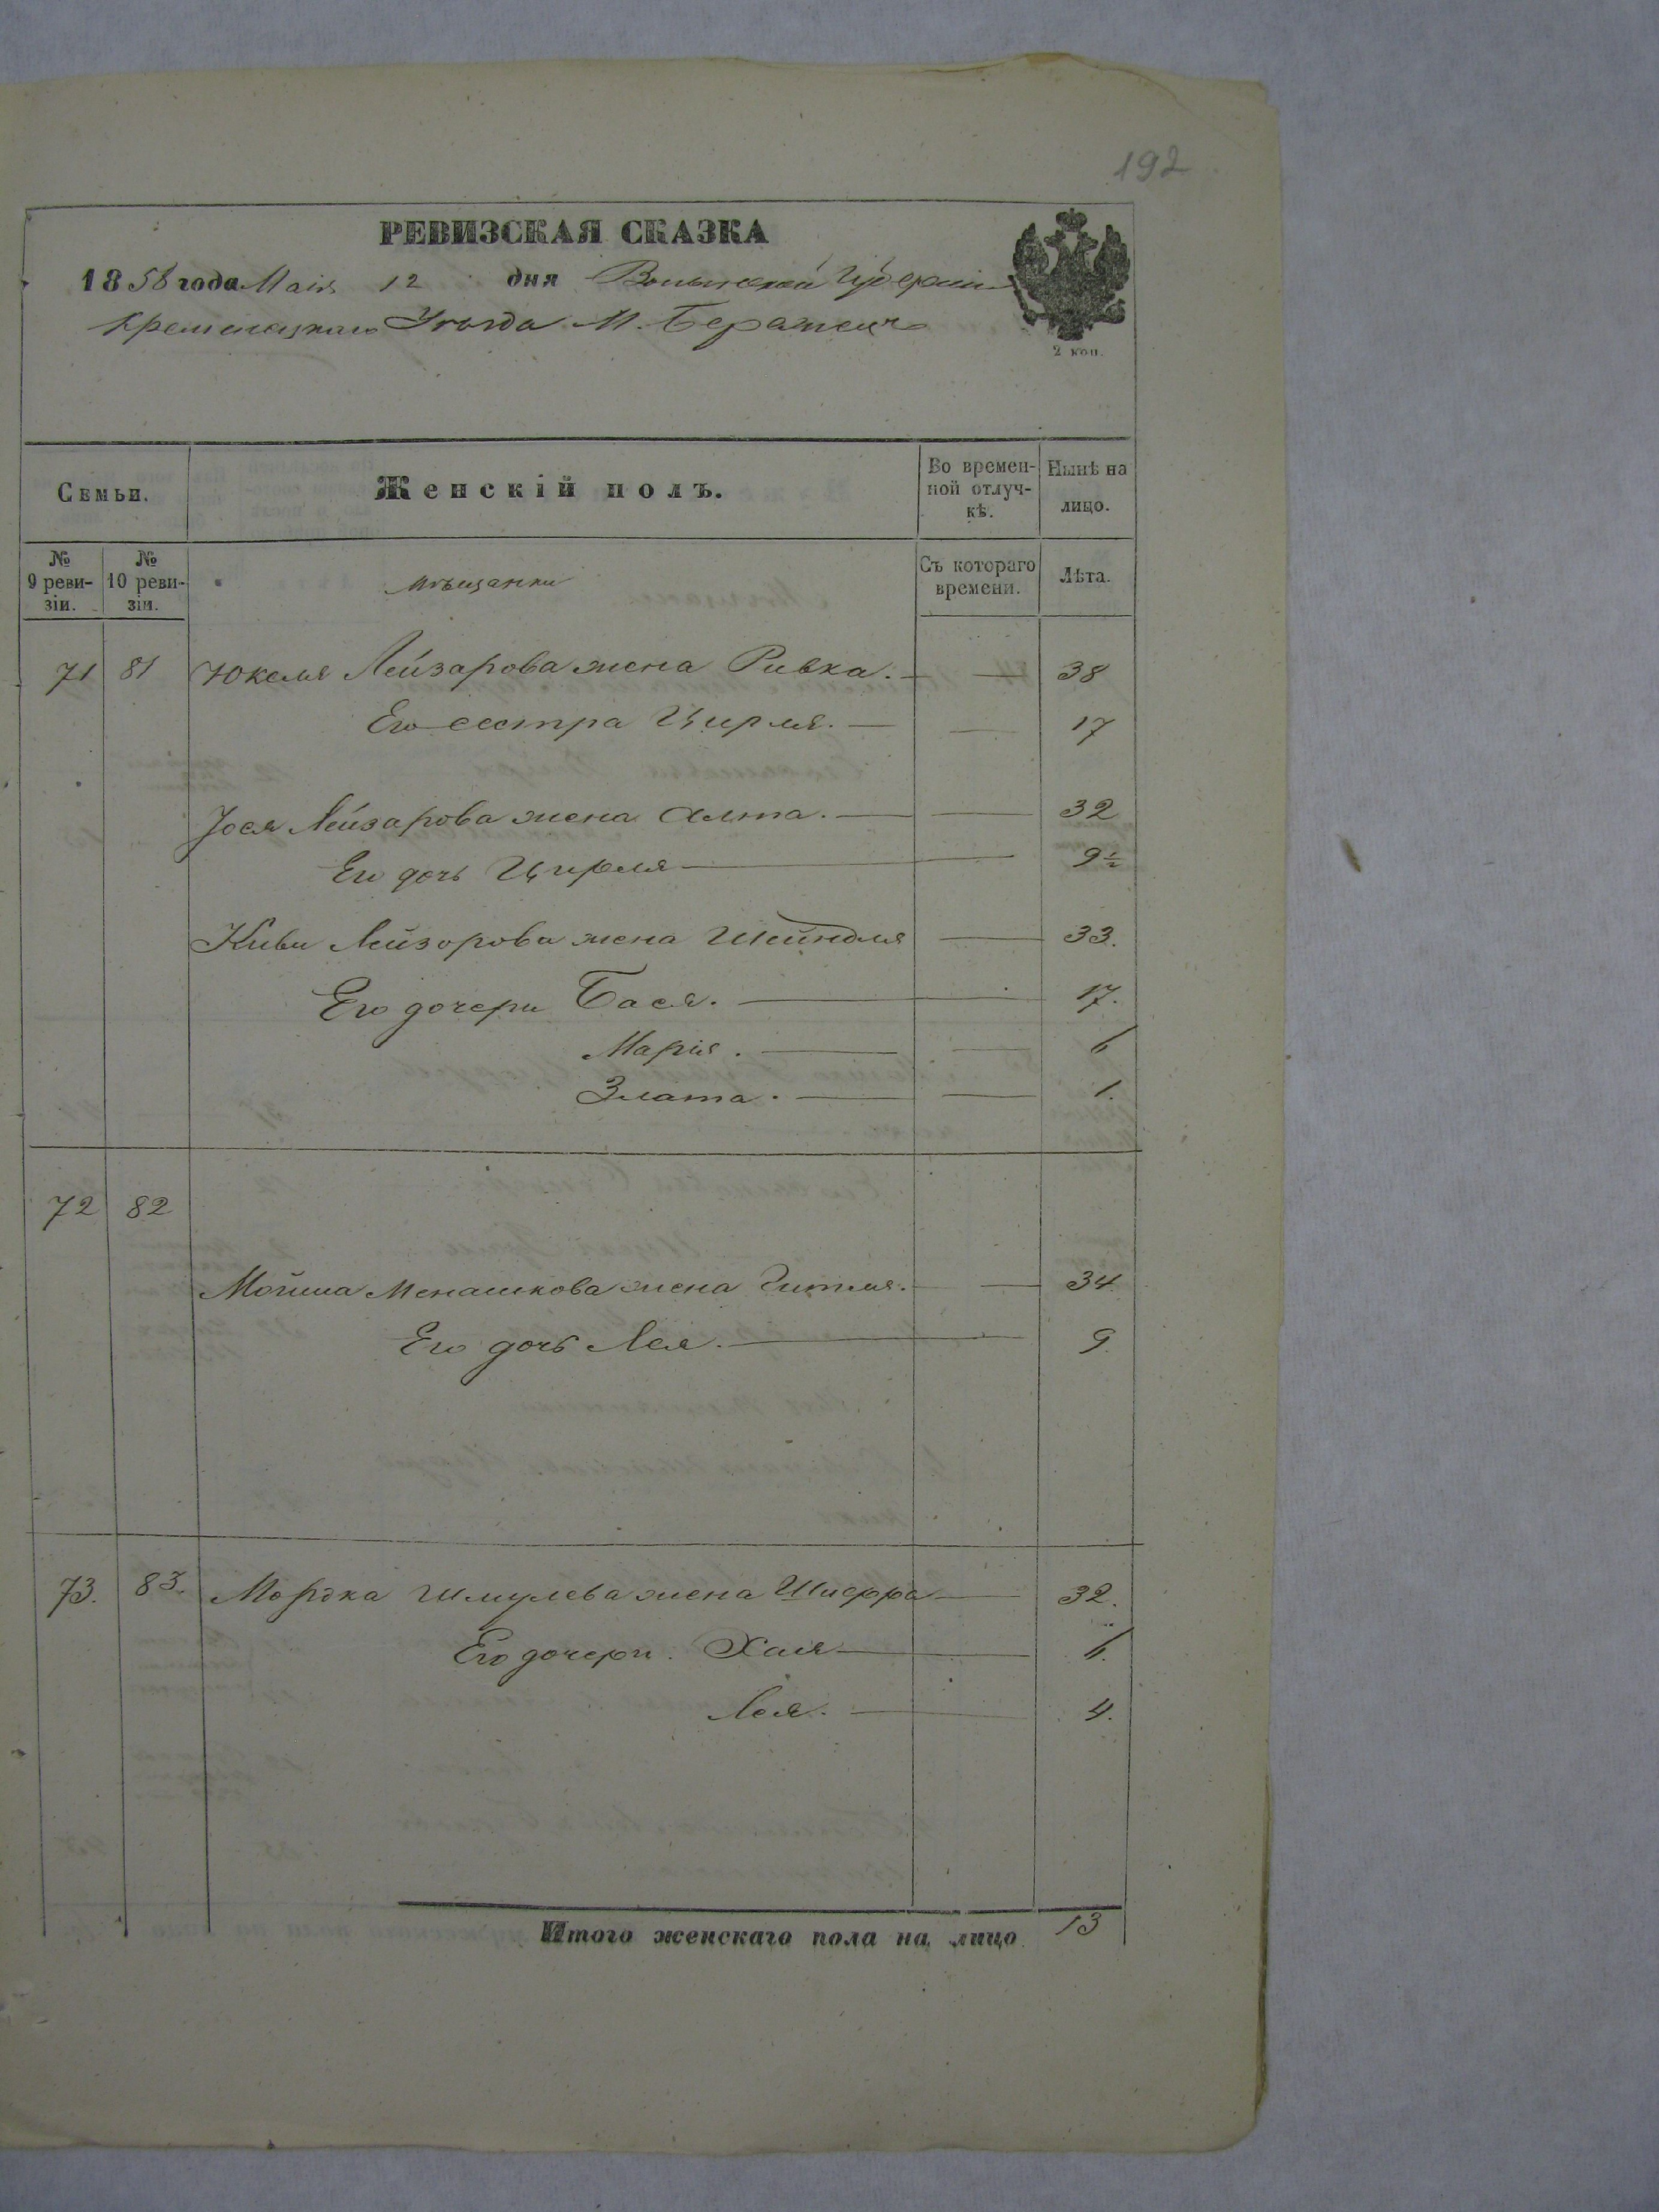 192
РЕВИЗСКАЯ СКАЗКА
1858 года Маія 12 дня Волынской Губерніи
Кременецкаго Уѣзда М. Бережецъ
2 коп.
Семьи. Женскій полъ. Во времен-ной отлуч-кѣ. Нынѣ на лицо.
№ 9 реви-зіи. № 10 реви-зіи. мѣщанки Съ котораго времени. Лѣта.
71 81 Юкеля Лейзарова жена Ривка. — — 38
Его сестра Цирля. — — 17
Йося Лейзарова жена Алта. — — 32
Его дочь Цирля — — 9½
Киви Лейзорова жена Шейндля — 33.
Его дочери Бася. — — 17.
Марія. — — 6
Злата. — — 1.
72 82
Мойша Менашкова жена Гитля. — — 34
Его дочь Лея. — — 9.
73. 83. Мордка Шмулева жена Шифра — 32.
Его дочери. Хая — — 6.
Лея. — — 4.
Итого женскаго пола на лицо 13